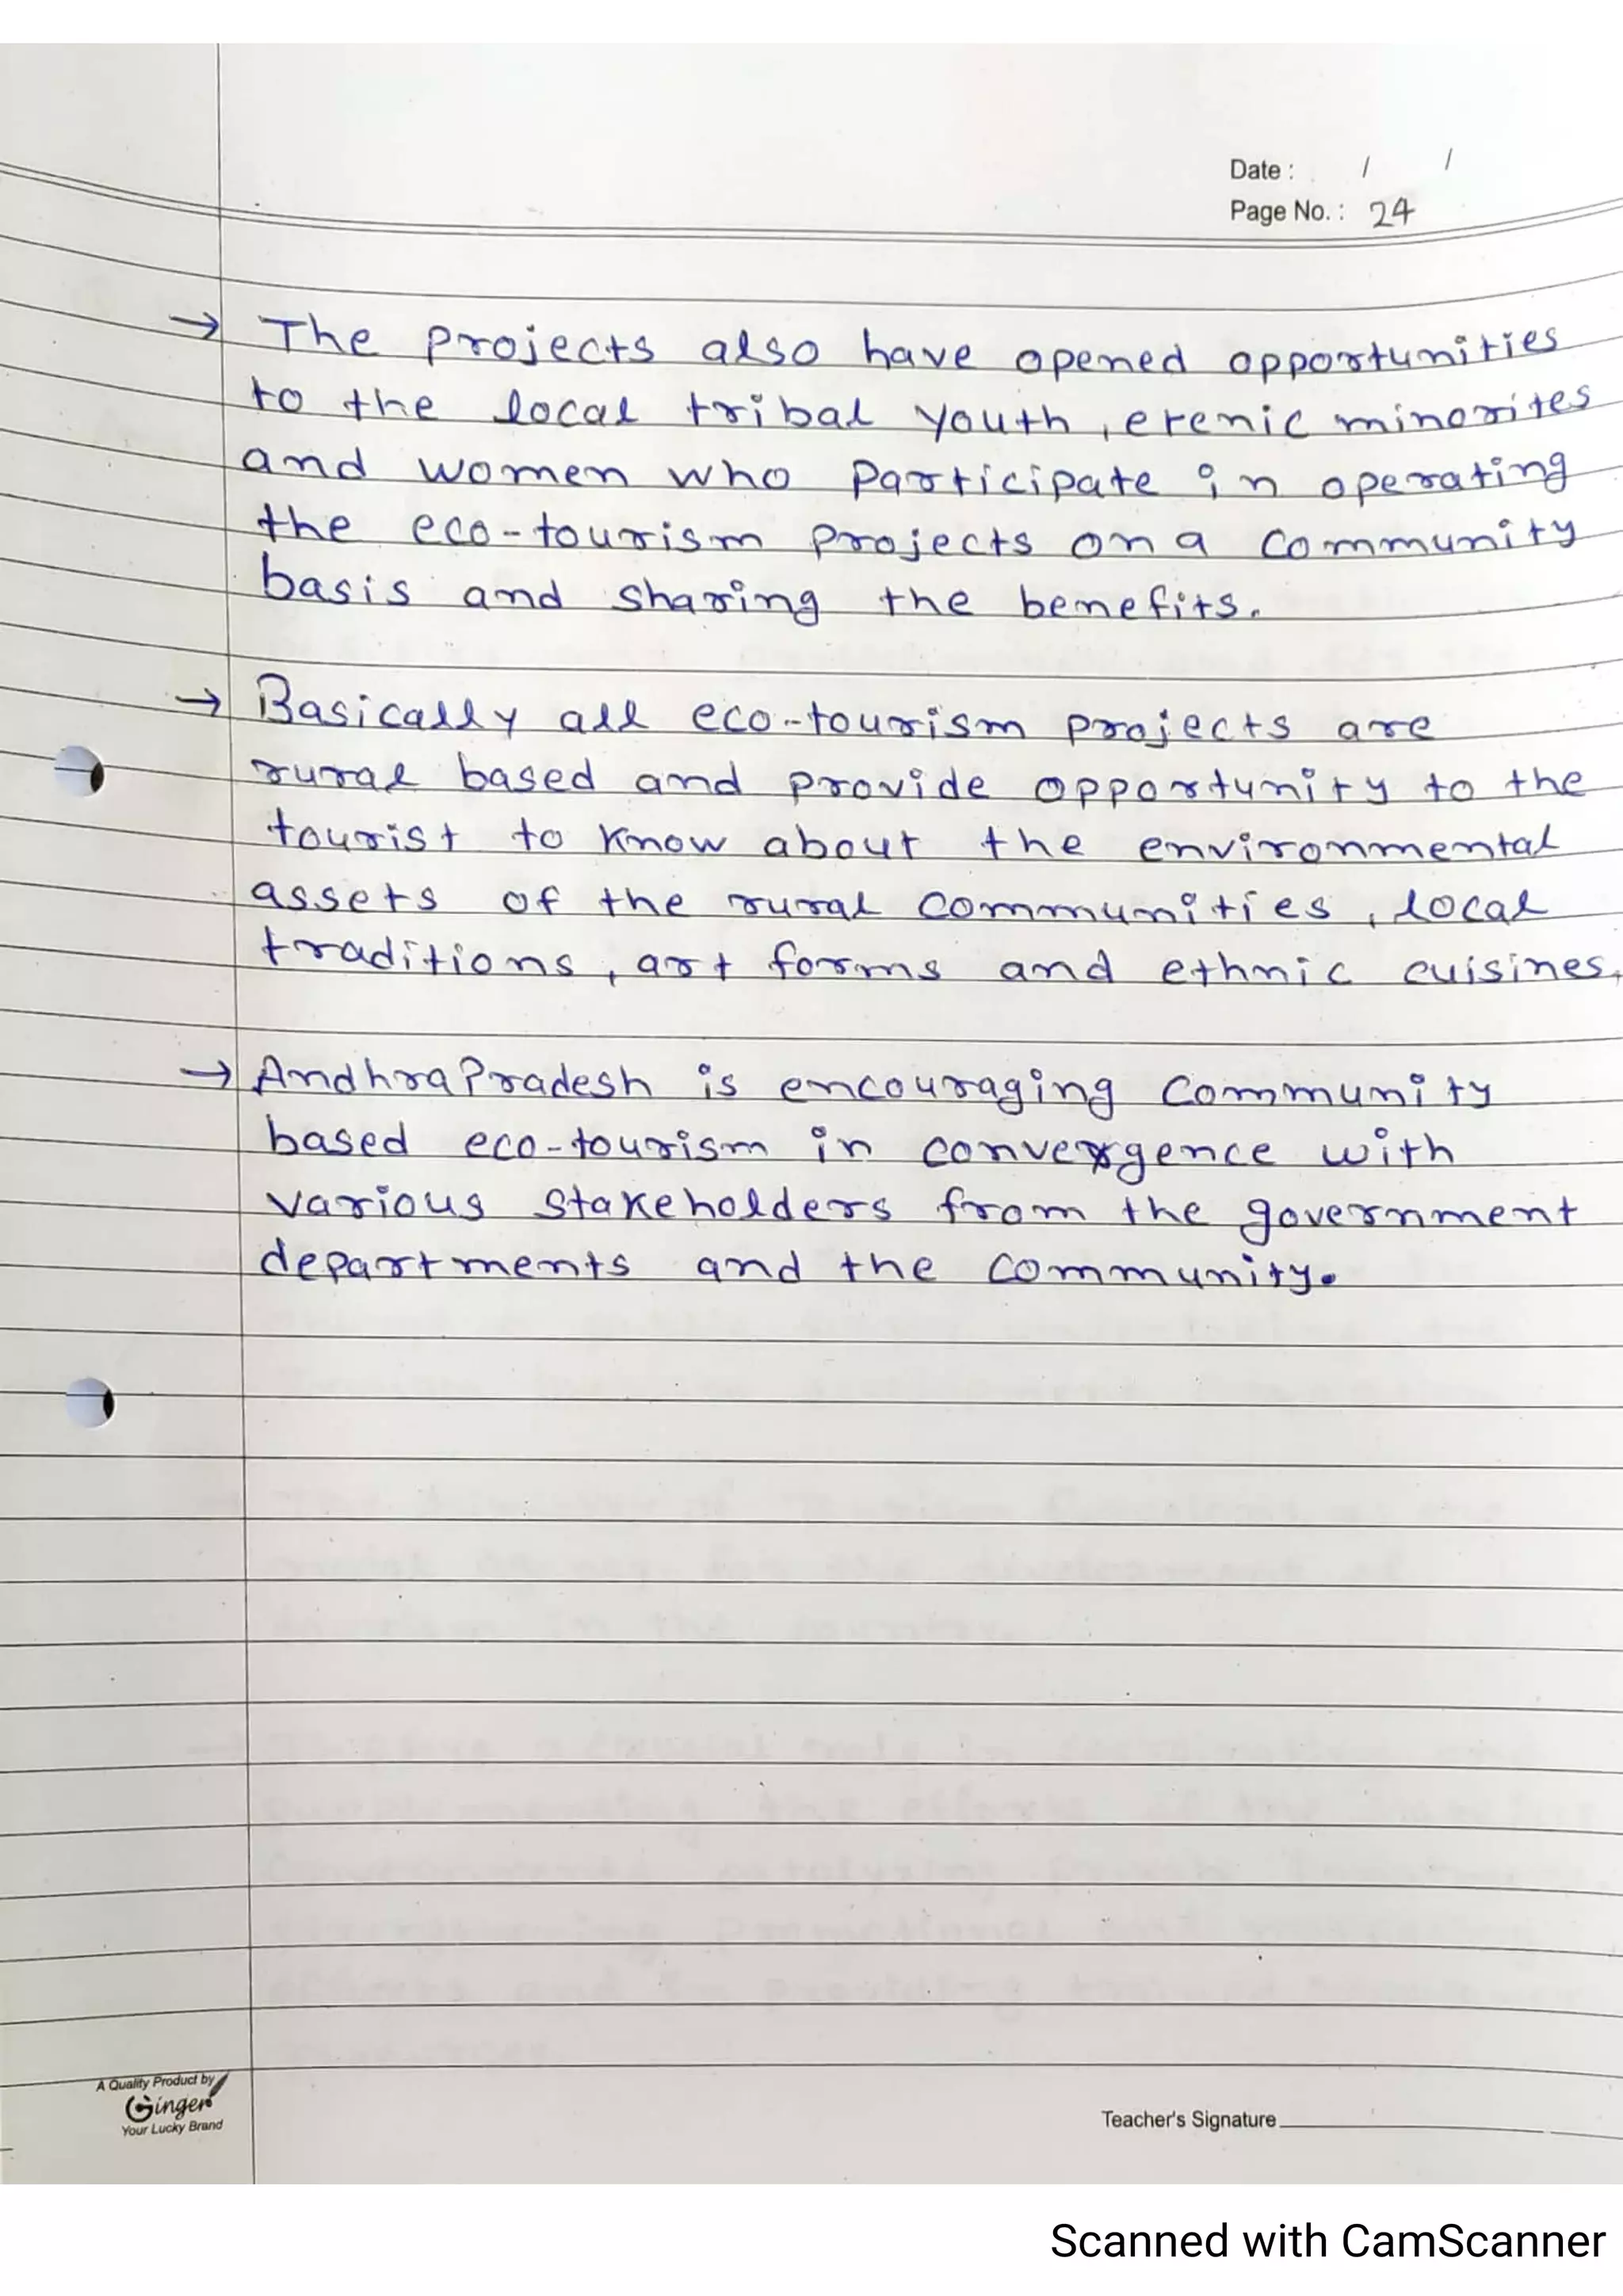 Date : / /
Page No. : 24
→ The projects also have opened opportunities
to the local tribal youth, erenic minorites
and women who participate in operating
the eco-tourism projects on a community
basis and sharing the benefits.
→ Basically all eco-tourism projects are
rural based and provide opportunity to the
tourist to know about the environmental
assets of the rural communities, local
traditions, art forms and ethnic cuisines.
→ Andhra Pradesh is encouraging community
based eco-tourism in convergence with
various stakeholders from the government
departments and the community.
A Quality Product by
Ginger
Your Lucky Brand
Teacher's Signature
Scanned with CamScanner